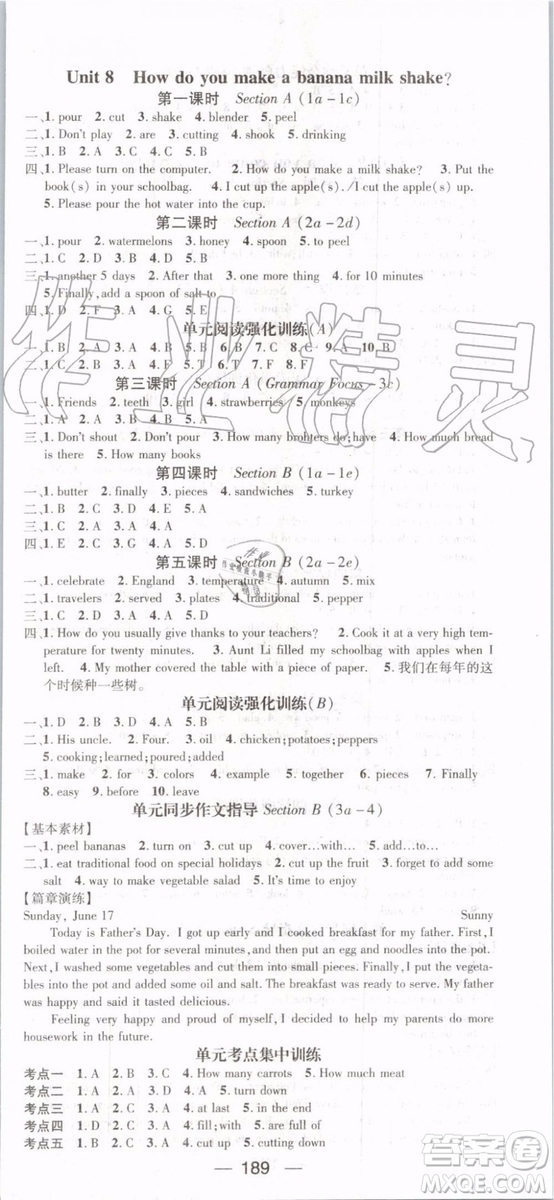 Unit 8 How do you make a banana milk shake?
第一课时 Section A (1a-1c)
一、1. pour 2. cut 3. shake 4. blender 5. peel
二、1. Don't play 2. are 3. cutting 4. shook 5. drinking
三、1. B 2. A 3. A 4. C 5. B
四、1. Please turn on the computer. 2. How do you make a milk shake? 3. Put the
book(s) in your schoolbag. 4. I cut up the apple(s)./I cut the apple(s) up.
5. Please pour the hot water into the cup.
第二课时 Section A (2a-2d)
一、1. pour 2. watermelons 3. honey 4. spoon 5. to peel
二、1. C 2. D 3. A 4. A 5. B
三、1. another 5 days 2. After that 3. one more thing 4. for 10 minutes
5. Finally, add a spoon of salt to
四、1. D 2. F 3. A 4. G 5. E
单元阅读强化训练(A)
一、1. C 2. A 3. B 4. A 5. B 6. B 7. C 8. C 9. A 10. A
二、1. C 2. B 3. D 4. A 5. D 6. T 7. F 8. F
第三课时 Section A (Grammar Focus-3c)
一、1. Friends 2. teeth 3. girl 4. strawberries 5. monkeys
二、1. C 2. D 3. B 4. A 5. B
三、1. Don't shout 2. Don't pour 3. How many brothers do; have 4. How much bread
is there 5. How many books
第四课时 Section B (1a-1e)
一、1. butter 2. finally 3. pieces 4. sandwiches 5. turkey
二、1. B 2. C 3. A 4. D 5. B
三、1. C 2. C 3. A 4. A 5. A
四、1. E 2. C 3. F 4. D 5. G
第五课时 Section B (2a-2e)
一、1. celebrate 2. England 3. temperature 4. autumn 5. mix
二、1. travelers 2. served 3. plates 4. traditional 5. pepper
三、1. B 2. D 3. C 4. D 5. A
四、1. How do you usually give thanks to your teachers? 2. Cook it at a very high tem-
perature for twenty minutes. 3. Aunt Li filled my schoolbag with apples when I
left. 4. My mother covered the table with a piece of paper. 5. 我们在每年的这
个时候种一些树。
单元阅读强化训练(B)
一、1. D 2. B 3. D 4. A 5. C
二、1. His uncle. 2. mix 3. oil 4. chicken;potatoes;peppers
5. cooking;learned;poured;added
三、1. make 2. for 3. many 4. example 5. together 6. pieces 7. Finally
8. easy 9. before 10. leave
单元同步作文指导 Section B (3a-4)
【基本素材】
一、1. peel bananas 2. turn on 3. cut up 4. cover...with... 5. add...to...
二、1. eat traditional food on special holidays 2. cut the fruit 3. fill; with
4. way to make vegetable salad 5. It's time to enjoy
【篇章演练】
Sunday, June 17 Sunny
Today is Father's Day. I got up early and I cooked breakfast for my father. First, I
boiled water in the pot for several minutes, and then put an egg and noodles into the pot.
Next, I washed some vegetables and cut them into small pieces. Finally, I put the vegeta-
bles into the pot and added some oil and salt. The breakfast was ready to serve. My father
was happy and said it tasted delicious.
Feeling very happy and proud of myself, I decided to help my parents do more
housework in the future.
单元考点集中训练
考点一 1. A 2. B 3. C 4. How many carrots 5. How much meat
考点二 1. A 2. D 3. A 4. A 5. turn down
考点三 1. D 2. C 3. A 4. at last 5. in the end
考点四 1. D 2. D 3. A 4. fill; with 5. are full of
考点五 1. B 2. C 3. A 4. cut up 5. cutting down
189
作业精灵
答案圈